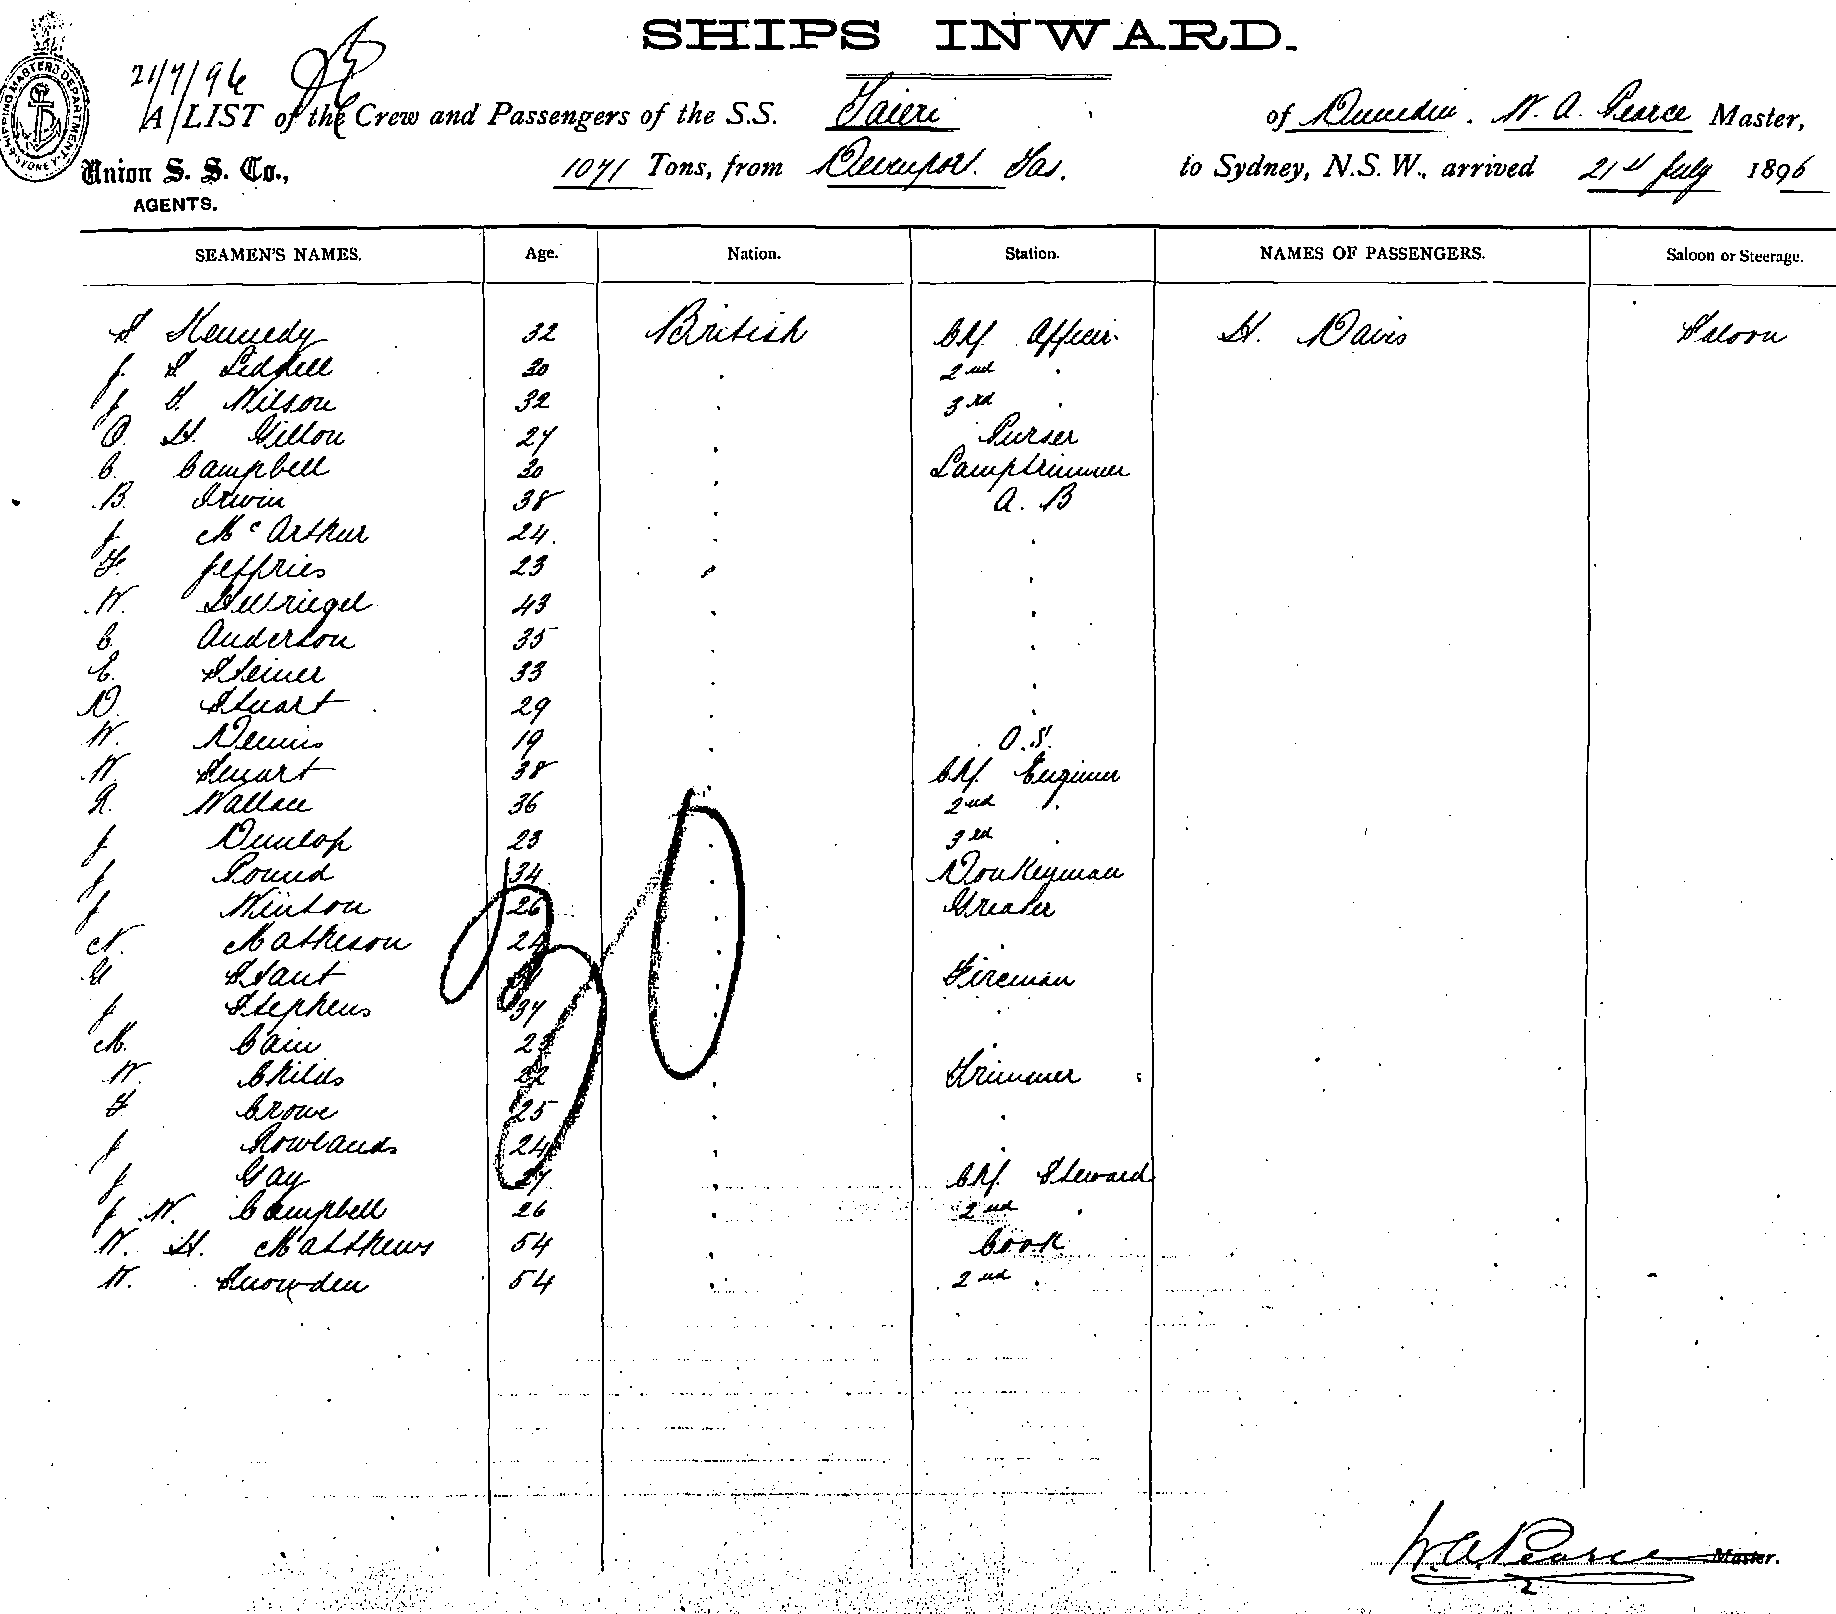 SHIPS INWARD.
21/7/96
A LIST of the Crew and Passengers of the S.S. Taieri of Dunedin. W. A. Pearce Master,
Union S. S. Co., AGENTS. 1071 Tons, from Devenport. Tas. to Sydney, N.S.W., arrived 21st July 1896
SEAMEN'S NAMES. Age. Nation. Station. NAMES OF PASSENGERS. Saloon or Steerage.
S Kennedy 32 British Chf Officer H. Davis Saloon
J. S Liddell 30 " 2nd "
J T. Wilson 32 " 3rd "
O. H. Gillon 27 " Purser
C. Campbell 30 " Lamptrimmer
B. Irwin 38 " A. B
J McArthur 24. " "
F. Jeffries 23 " "
W. 43 " "
C Anderson 35 " "
E. Steiner 33 " "
D. Stuart 29 " "
W. Dennis 19 " O.S.
W Stuart 38 " Chf. Engineer
R. Wallace 36 " 2nd "
J Dunlop 23 " 3rd "
J Pound 34 " Donkeyman
J Winton 26 " Greaser
N. Matheson " "
G Stant " Fireman
J Stephens 37 " "
M. Cain " "
W. Childs 22 " Trimmer
F. Crowe 25 " "
J Rowlands 24 " "
J Gay 27. " Chf. Steward
J. W. Campbell 26 " 2nd "
W. H. Matthews 54 " Cook
W. Snowden 54 " 2nd "
W. A. Pearce Master.